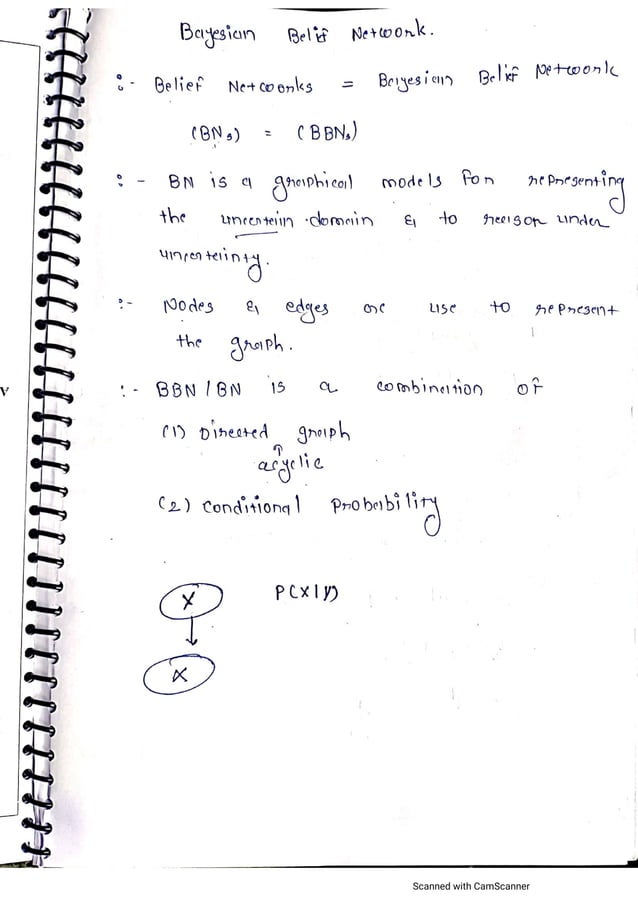 Bayesian Belief Network.
:- Belief Networks = Bayesian Belief Network
(BNs) = (BBNs)
:- BN is a graphical models for representing
the uncertain domain & to reason under
uncertainty.
:- Nodes & edges are use to represent
the graph.
:- BBN / BN is a combination of
(1) Directed graph
↑
acyclic
(2) Conditional Probability
X P(X|Y)
X
V
Scanned with CamScanner